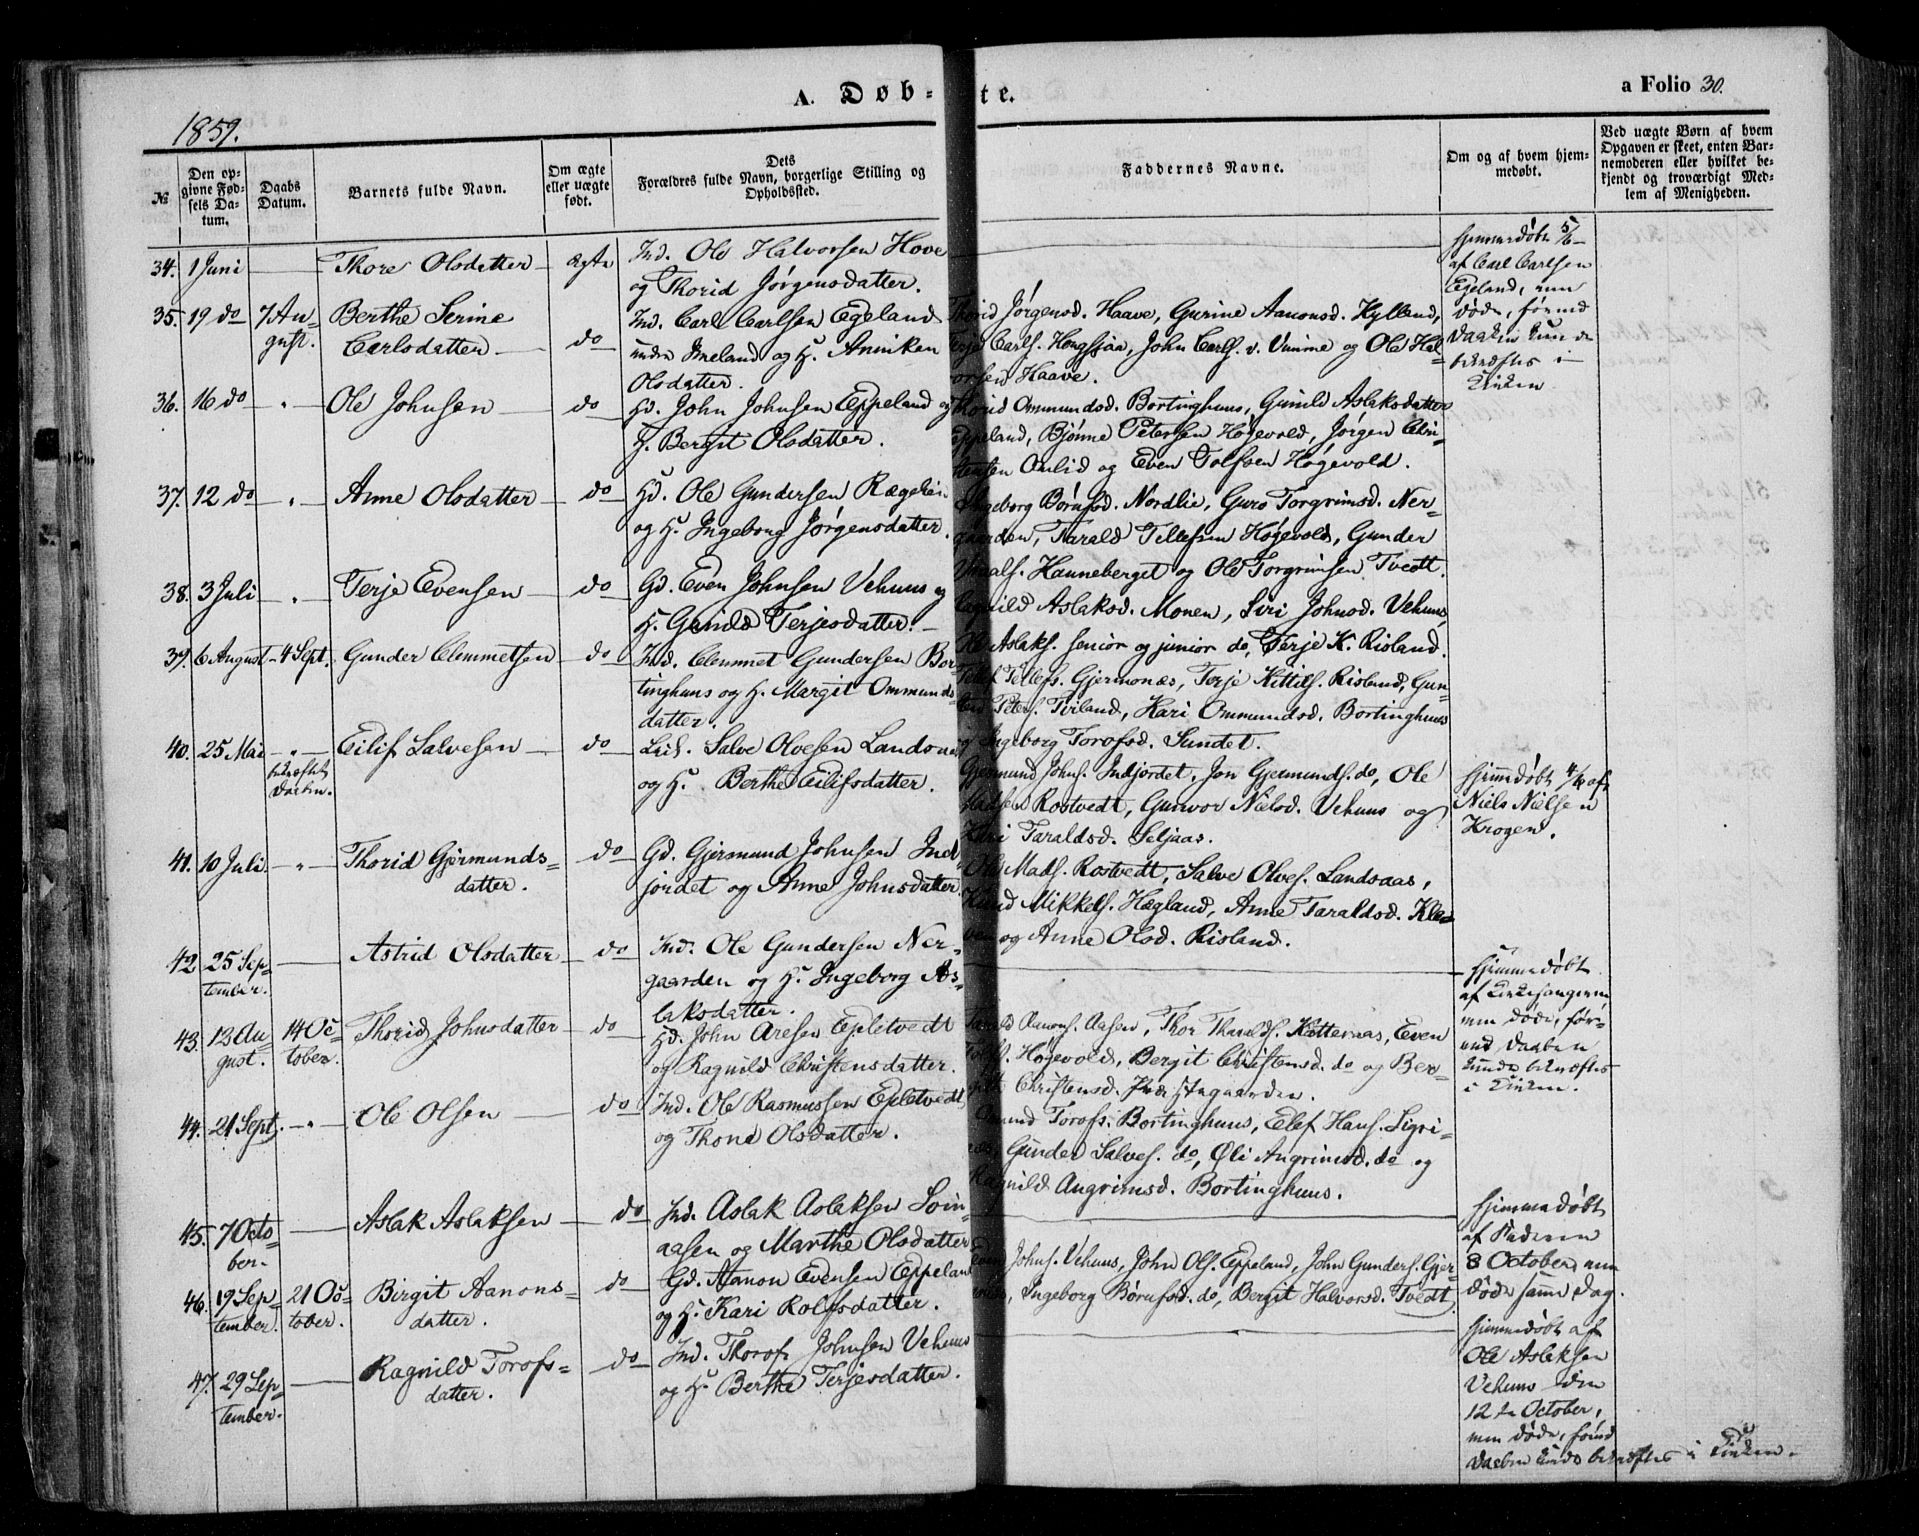 A. Døb- te.
a Folio 30.
1859.
№
Den opgivne Fødsels Datum.
Daabs Datum.
Barnets fulde Navn.
Om ægte eller uægte født.
Dets Forældres fulde Navn, borgerlige Stilling og Opholdssted.
Faddernes Navne.
Om og af hvem hjemmedøbt.
Ved uægte Børn af hvem Opgaven er skeet, enten Barnemoderen eller hvilket bekjendt og troværdigt Medlem af Menigheden.
34. 1 Juni — Thore Olsdatter — Ægte
Ind. Ole Halvorsen Hove
og Thorid Jørgensdatter.
Hjemmedøbt 5/6
af Carl Carlsen
Egeland, men
døde, førend
Daaben kunde
bekræftes i
Kirken
35. 19 do 7 August. Berthe Serine
Carlsdatter — do
Ind. Carl Carlsen Egeland
indre Imeland og H. Anniken
Olsdatter.
Thorid Jørgensd. Haave, Gurine Aanonsd. Hylland,
Terje Carls. Hougsjaa, John Carls. v. Vimme og Ole Hal-
vorsen Haave.
36. 16 do — „ — Ole Johnsen — do
Gd. John Johnsen Eppeland og
H. Bergit Olsdatter.
Thorid Ommundsd. Bortinghuus, Gunild Aslaksdatter
Eppeland, Bjønne Petersen Høgevold, Jørgen Chri-
stensen Omlid og Even Tolfsen Høgevold.
37. 12 do — „ — Anne Olsdatter — do
Hd. Ole Gundersen
og H. Ingeborg Jørgensdatter.
Ingeborg Børufsd. Nordlie, Guro Torgrimsd. Ner-
gaarden, Tarald Tellefsen Høgevold, Gunder
Hanneberget og Ole Torgrimsen Tvedt.
38. 3 Juli — „ — Terje Evensen — do
Gd. Even Johnsen Vehuus og
H. Gunild Terjesdatter. —
Ragnild Aslaksd. Monen, Siri Johnsd. Vehuus,
Ole Aslaks. senior og junior do, Terje K. Risland.
39. 6 August — 4 Sept. Gunder Clemmetsen — do
Ind. Clemmet Gundersen Bor-
tinghuus og H. Margit Ommunds-
datter.
Tellef Tellefs. Gjermonæs, Terje Kittils. Risland, Gun-
Peters. Tveiland, Kari Ommundsd. Bortinghuus
og Ingeborg Torofsd. Sundet.
40. 25 Mai — „ —
bekræftet
Daaben.
Eilif Salvesen — do
Leil. Salve Olvesen Landsaas
og H. Berthe Eilifsdatter.
Gjermund Johns. Indjordet, Jon Gjermunds. do, Ole
Madsen Rostvedt, Gunvor Nielsd. Vehuus og
Taraldsd. Seljaas.
Hjemmedøbt 4/6 af
Niels Nielsen
Krogen.
41. 10 Juli. — „ — Thorid Gjermunds-
datter. do
Gd. Gjermund Johnsen Ind-
jordet og Anne Johnsdatter.
Ole Mads. Rostvedt, Salve Olves. Landsaas,
Knud Mikkels. Hægland, Anne Taraldsd. Kle-
ven og Anne Olsd. Risland.
42. 25 Sep-
tember. — Astrid Olsdatter — do
Ind. Ole Gundersen Ner-
gaarden og H. Ingeborg As-
laksdatter.
Hjemmedøbt
af Kirkesangeren
men døde, før-
end Daaben
kunde bekræftes
i Kirken.
43. 13 Au-
gust. 14 Oc-
tober. Thorid Johnsdatter — do
Hd. John Aresen Epletvedt
og Ragnild Christensdatter.
Aanons. Aasen, Thor Tharalds. Katteraas, Even
Tolfs. Høgevold, Bergit Christensd. do og Ber-
git Christensd. Præstegaarden.
44. 21 Sept. — „ — Ole Olsen — do
Ind. Ole Rasmussen Epletvedt
og Thone Olsdatter.
Omund Torofs. Bortinghuus, Elef Hans. Sigri-
næs, Gunder Salves. do, Øli Angrimsd. do og
Ragnild Angrimsd. Bortinghuus.
45. 7 Octo-
ber. — Aslak Aslaksen — do
Ind. Aslak Aslaksen
aasen og Marthe Olsdatter
Hjemmedøbt
af Faderen
8 October, men
døde samme Dag.
46. 19 Sep-
tember. 21 Oc-
tober. Birgit Aanons-
datter. do
Gd. Aanon Evensen Eppeland
og H. Kari Rolfsdatter.
Even Johns. Vehuus, John Ols. Eppeland, John Gunders. Gjer-
monæs, Ingeborg Børufsd. do, Bergit Halvorsd. Tvedt
47. 29 Sep-
tember. — Ragnild Torofs-
datter. do
Ind. Thorof Johnsen Vehuus
og H. Berthe Terjesdatter.
Hjemmedøbt af
Ole Aslaksen
Vehuus den
12te October,
men døde, førend
Daaben kunde bekræftes i Kirken.